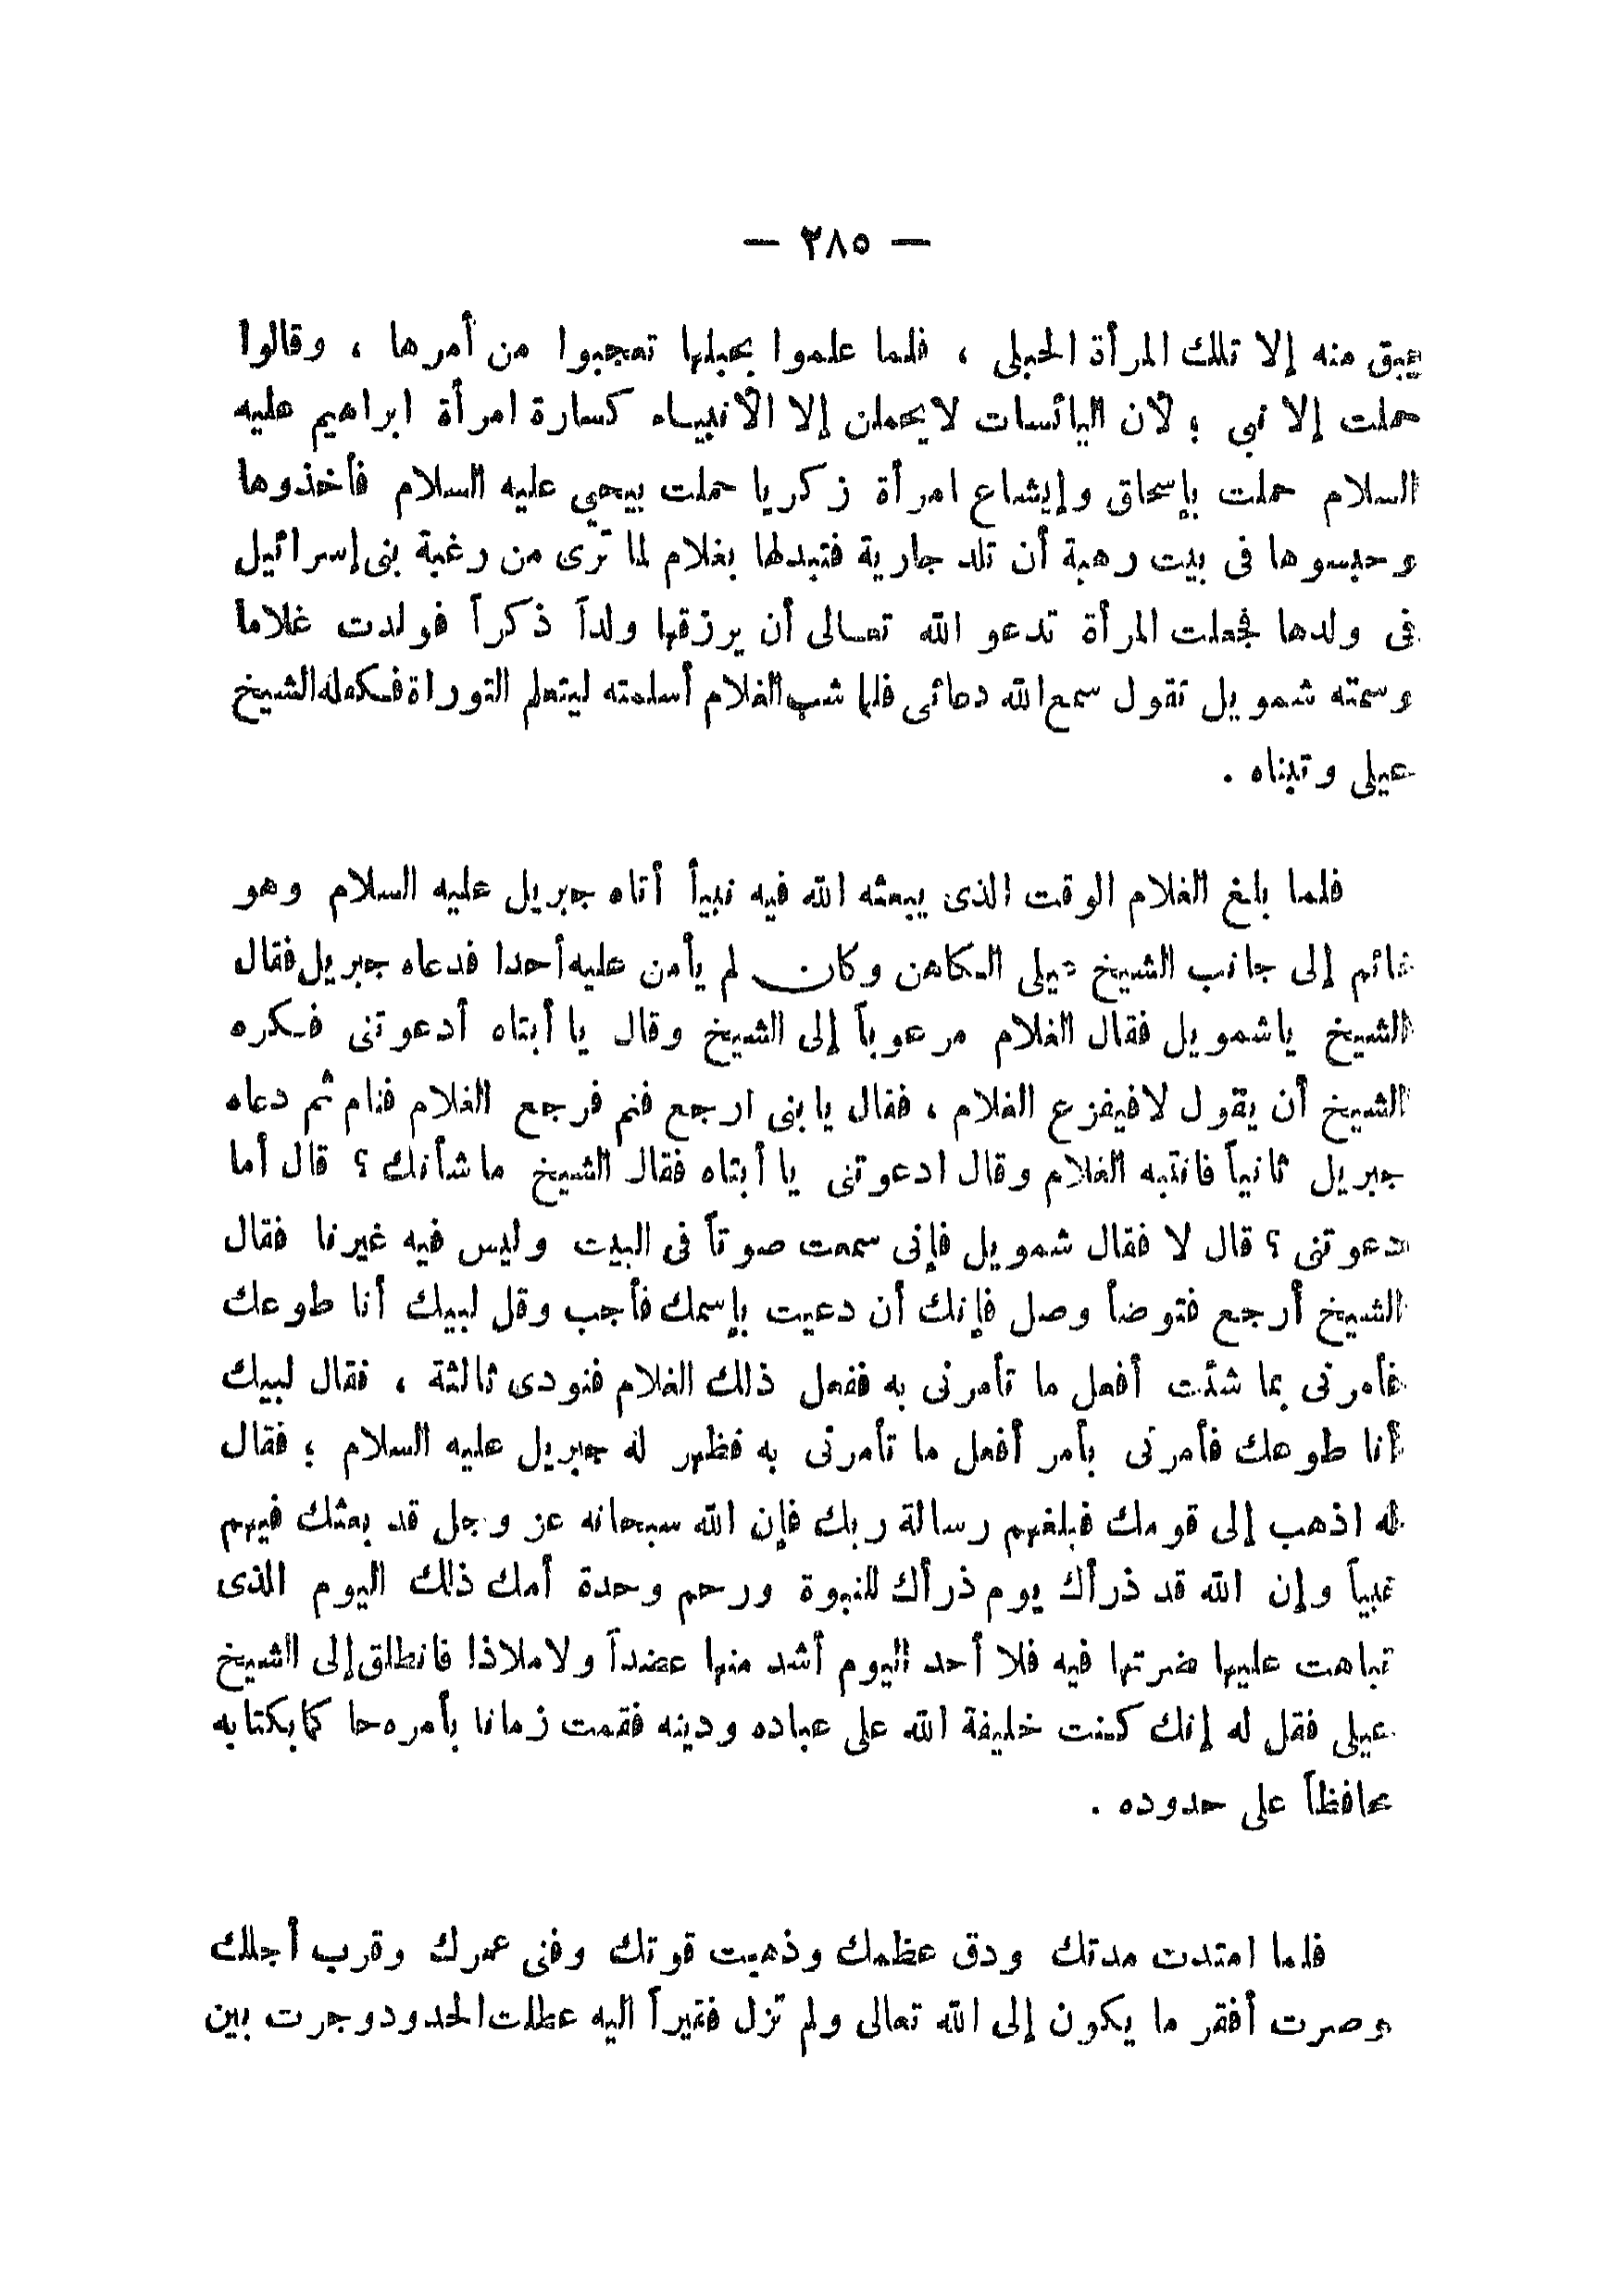 — ٢٨٥ —
يبق منه إلا تلك المرأة الحبلى ، فلما علموا بحبلها تعجبوا من أمرها ، وقالوا
حملت إلا نبي ؛ لأن اليائسات لايحملن إلا الأنبياء كسارة امرأة ابراهيم عليه
السلام حملت بإسحاق وإيشاع امرأة زكريا حملت بيحي عليه السلام فأخذوها
وحبسوها فى بيت رهبة أن تلد جارية فتبدلها بغلام لما ترى من رغبة بنى إسرائيل
فى ولدها فجعلت المرأة تدعو الله تعالى أن يرزقها ولداً ذكراً فولدت غلاماً
وسمته شمويل تقول سمع الله دعائى فلما شب الغلام أسلمته ليتعلم التوراة فكفله الشيخ
عيلى وتبناه .
فلما بلغ الغلام الوقت الذى يبعثه الله فيه نبياً أتاه جبريل عليه السلام وهو
نائم إلى جانب الشيخ عيلى الكاهن وكان لم يأمن عليه أحدا فدعاه جبريل فقال
الشيخ ياشمويل فقال الغلام مرعوباً إلى الشيخ وقال يا أبتاه أدعوتنى فكره
الشيخ أن يقول لافيفزع الغلام ، فقال يابنى ارجع فنم فرجع الغلام فنام ثم دعاه
جبريل ثانياً فانتبه الغلام وقال ادعوتنى يا أبتاه فقال الشيخ ماشأنك ؟ قال أما
دعوتنى ؟ قال لا فقال شمويل فإنى سمعت صوتاً فى البيت وليس فيه غيرنا فقال
الشيخ أرجع فتوضأ وصل فإنك أن دعيت بإسمك فأجب وقل لبيك أنا طوعك
فأمرنى بما شئت أفعل ما تأمرنى به ففعل ذلك الغلام فنودى ثالثة ، فقال لبيك
أنا طوعك فأمرنى بأمر أفعل ما تأمرنى به فظهر له جبريل عليه السلام ؛ فقال
له اذهب إلى قومك فبلغهم رسالة ربك فإن الله سبحانه عز وجل قد بعثك فيهم
نبياً وإن الله قد ذرأك يوم ذرأك للنبوة ورحم وحدة أمك ذلك اليوم الذى
تباهت عليها ضرتها فيه فلا أحد اليوم أشد منها عضداً ولاملاذا فانطلق إلى الشيخ
عيلى فقل له إنك كنت خليفة الله على عباده ودينه فقمت زمانا بأمره حا كما بكتابه
محافظاً على حدوده .
فلما امتدت مدتك ودق عظمك وذهبت قوتك وفنى عمرك وقرب أجلك
وصرت أفقر ما يكون إلى الله تعالى ولم تزل فقيراً اليه عطلت الحدود وجرت بين